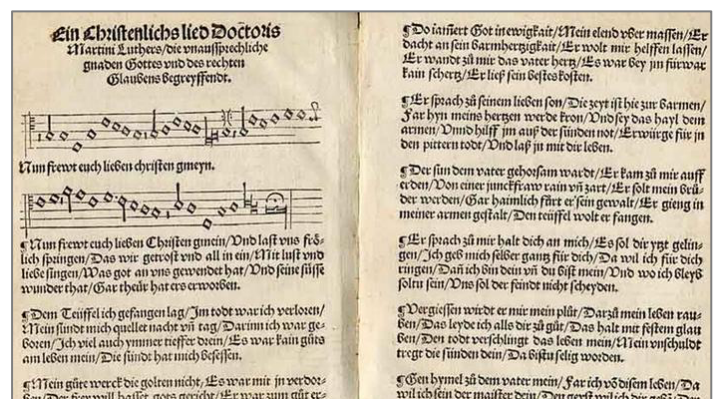 Ein Christenlichs lied Doctoris
Martini Luthers/die vnaussprechliche
gnaden Gottes vnd des rechten
Glaubens begreyffendt.
Nun frewt euch lieben christen gmeyn.
¶Nun frewt euch lieben Christen gmein/Vnd last vns frö-
lich springen/Das wir getrost vnd all in ein/Mit lust vnd
liebe singen/Was got an vns gewendet hat/Vnd seine süsse
wunder that/Gar theür hat ers erworben.
¶Dem Teüffel ich gefangen lag/Im todt war ich verloren/
Mein sündt mich quellet nacht vñ tag/Darinn ich war ge-
boren/Ich viel auch ymmer tieffer drein/Es war kain gůts
am leben mein/Die sündt hat mich besessen.
¶Mein gůte werck die golten nicht/Es war mit jn verdor-
ben/Der frey will hasset gots gericht/Er war zum gůt er-
¶Do jam̃ert Got in ewigkait/Mein elend vber massen/Er
dacht an sein barmhertzigkait/Er wolt mir helffen lassen/
Er wandt zů mir das vater hertz/Es war bey jm fürwar
kain schertz/Er ließ sein bestes kosten.
¶Er sprach zů seinem lieben son/Die zeyt ist hie zur barmen/
Far hyn meins hertzen werde kron/Vnd sey das hayl dem
armen/Vnnd hilff jm auß der sünden not/Erwürge für jn
den pittern todt/Vnd laß jn mit dir leben.
¶Der sun dem vater gehorsam wardt/Er kam zů mir auff
erden/Von einer junckfraw rain vñ zart/Er solt mein brů-
der werden/Gar haimlich fürt er sein gewalt/Er gieng in
meiner armen gestalt/Den teüffel wolt er fangen.
¶Er sprach zů mir halt dich an mich/Es sol dir ytzt gelin-
gen/Ich geb mich selber gantz für dich/Da wil ich für dich
ringen/Dañ ich bin dein vñ du bist mein/Vnd wo ich bleyb
soltu sein/Vns sol der feindt nicht scheyden.
¶Vergiessen wirdt er mir mein plůt/Darzů mein leben rau-
ben/Das leyde ich als dir zů gůt/Das halt mit festem glau
ben/Den todt verschlingt das leben mein/Mein vnschuldt
tregt die sünden dein/Da bistu selig worden.
¶Gen hymel zů dem vater mein/Far ich vō disem leben/Da
wil ich sein der maister dein/Den geyst wil ich dir gebñ/Der